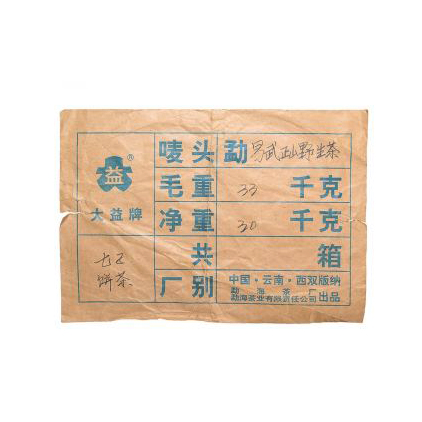 唛头 勐 易武正山野生茶
益®
毛重 33 千克
大益牌
净重 30 千克
共 箱
七子
饼茶
厂别 中国·云南·西双版纳
勐海茶厂
勐海茶业有限责任公司 出品